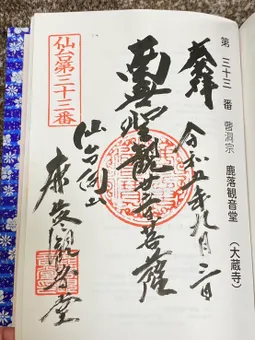 第三十三番 曹洞宗 鹿落観音堂 (大蔵寺)
奉拝
令和五年九月
南無聖観世音菩薩
仙台第三十三番
仙台向山
鹿落観音堂